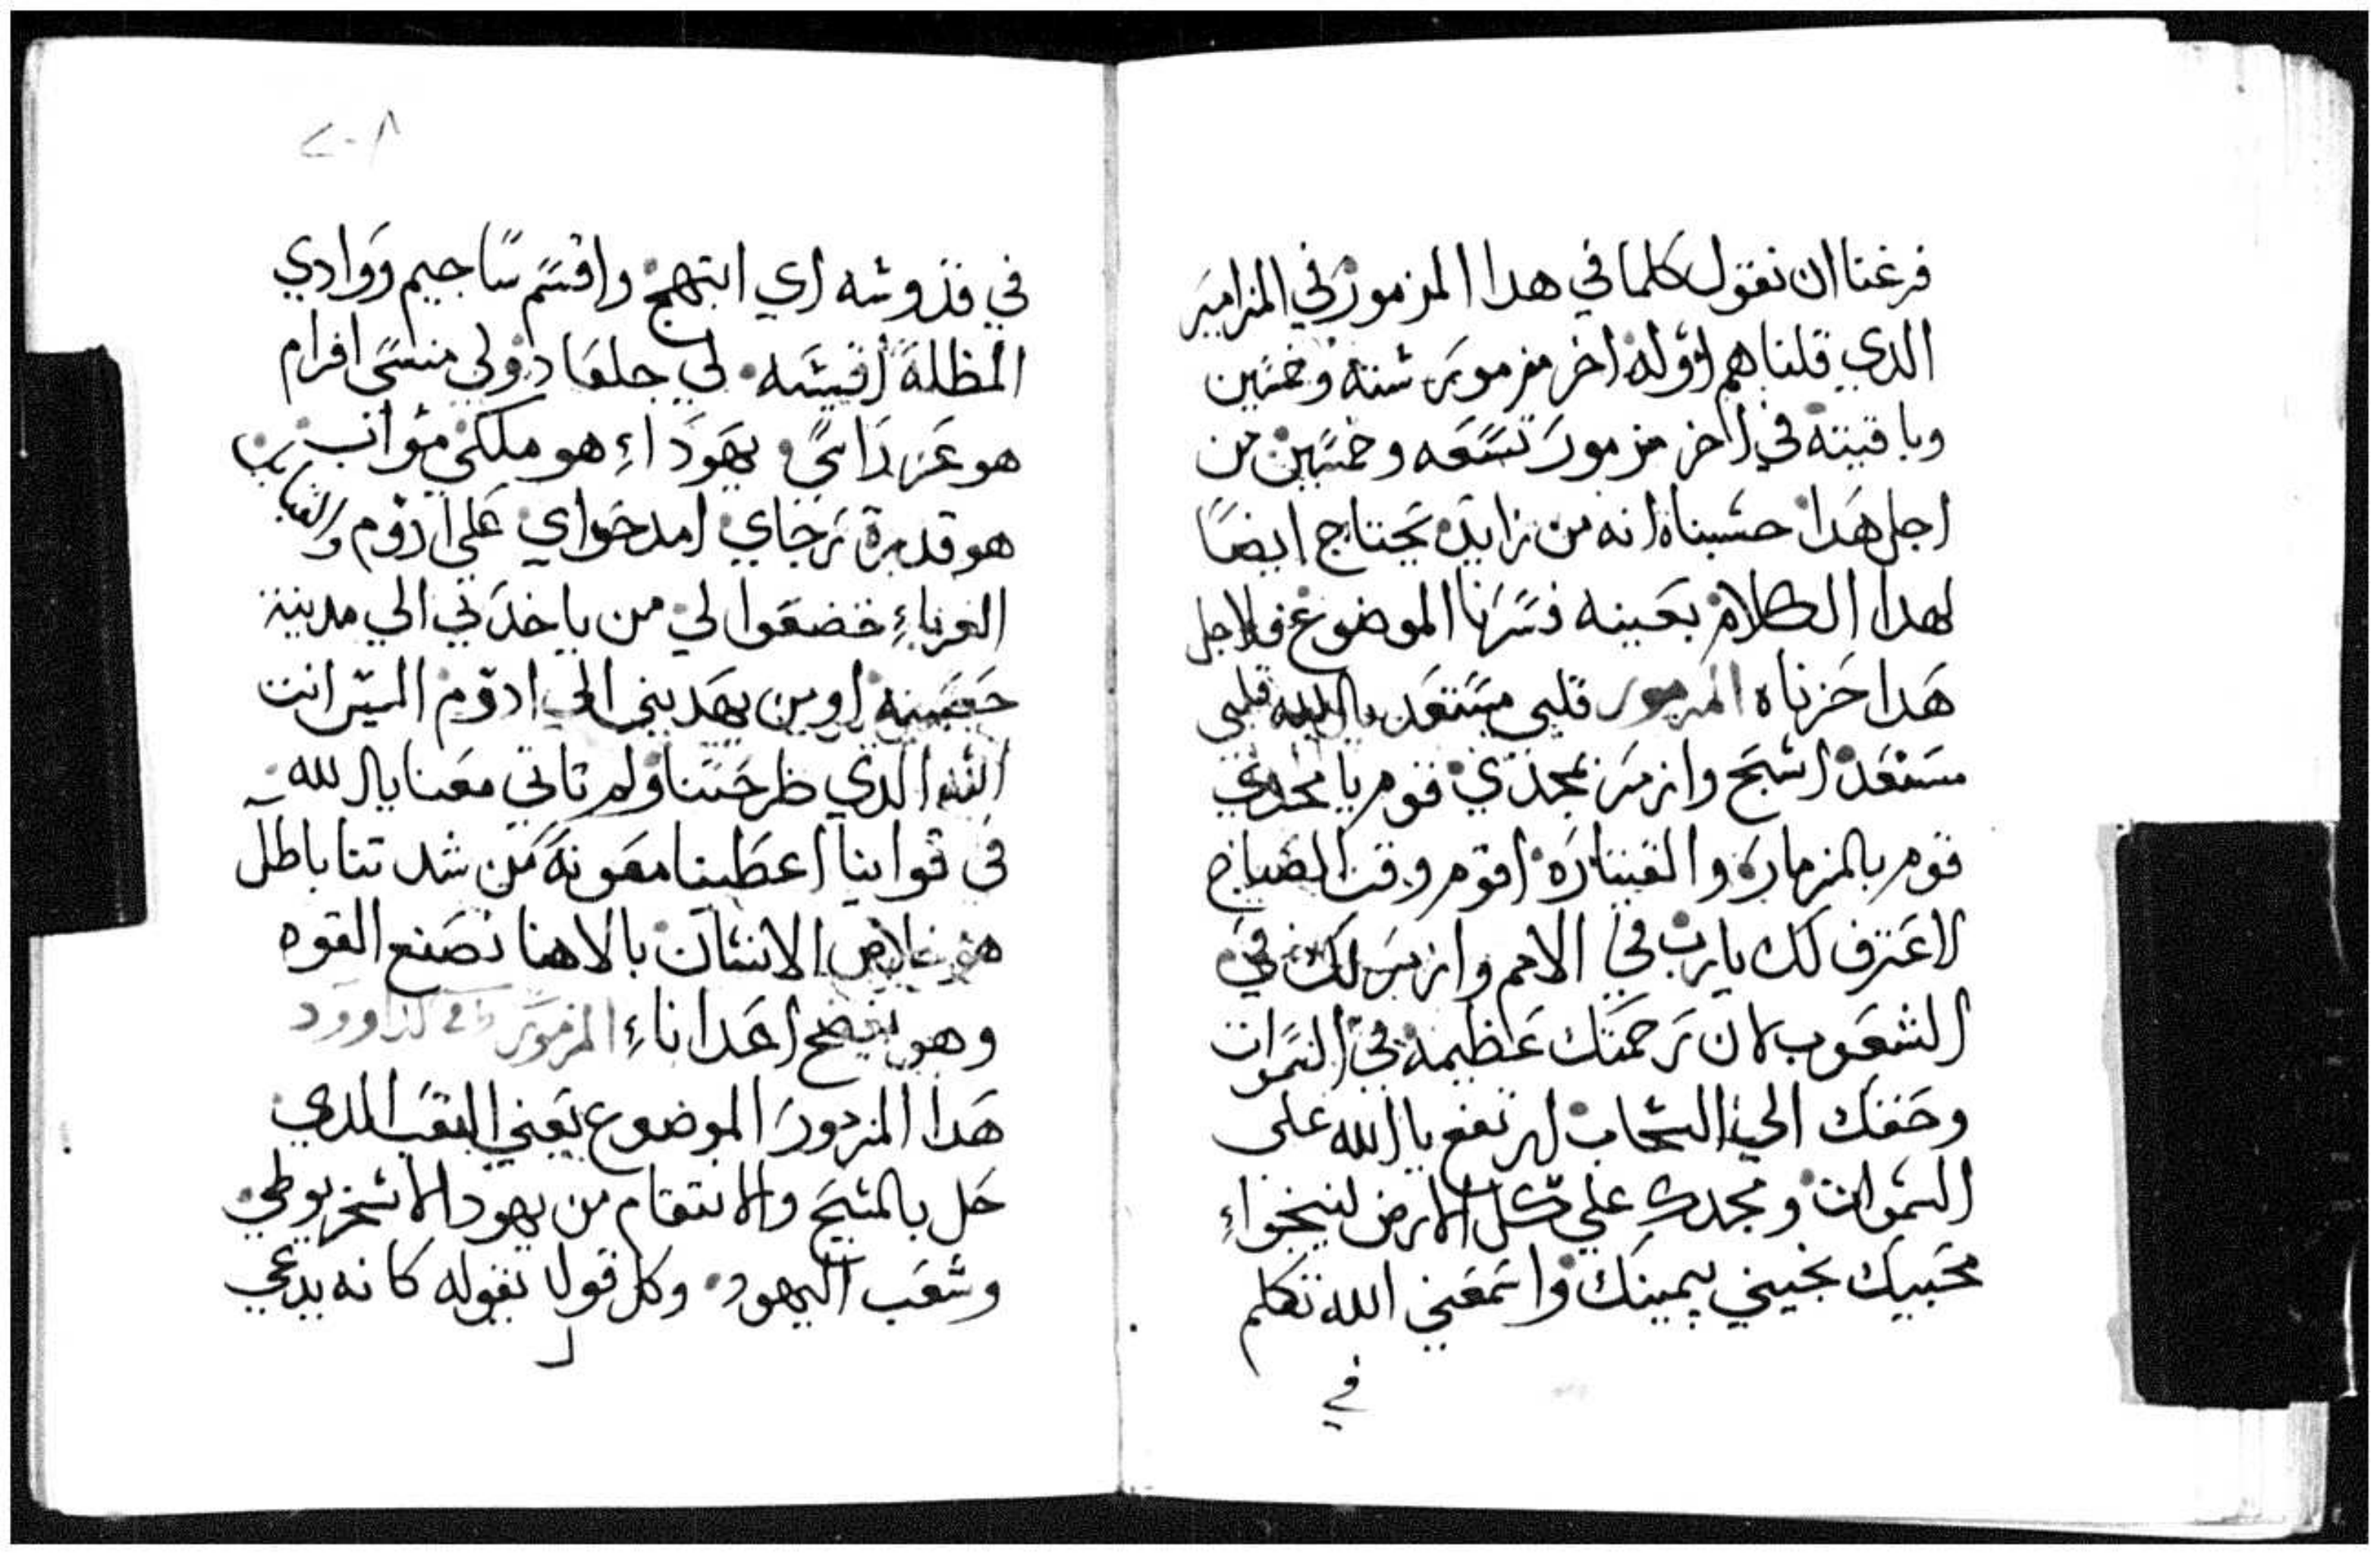 فرغنا ان نقول كلما في هدا المزمور في المزامير
الدي قلناهم اوله اخر مزمور ستة وخمسين
وباقيته في اخر مزمور تسعه وخمسين من
اجل هدا حسبناه انه من زايده يحتاج ايضا
لهدا الكلام بعينه فسرنا الموضوع فلاجل
هدا حزناه المزمور قلبي مستعد يا الله قلبي
مستعد اسبح وازمر بمجدي قوم يا مجدي
قوم بالمزماره والقيتاره اقوم وقت الصباح
لاعترف لك يارب في الامم وازمر لك في
الشعوب لان رحمتك عظيمه في السموات
وحقك الي السحاب ارتفع يا الله على
السموات ومجدك علي كل الارض لينجواء
محبيك نجيني بيمينك واسمعني الله تكلم
في
٢٠٨
في قدوسه اي ابتهج واقسم ساجيم ووادي
المظلة اقيسه لي جلعاد ولي منسى افرام
هو عز راسي يهوداء هو ملكي مواب
هو قدرة رجاي امد حواي على ادوم
الغرباء خضعوا لي من ياخدني الي مدينة
حصينه او من يهديني الي ادوم اليس انت
الله الدي طرحتنا ولم تاتي معنا يا الله
في قواتنا اعطينا معونة من شدتنا باطل
هو خلاص الانسان بالاهنا نصنع القوه
وهو يفضح اعداناء المزمور لداوود
هدا المزمور الموضوع يعني التعب الدي
حل بالمسيح والانتقام من يهودا الاسخريوطي
وشعب اليهود وكل قولا يقوله كانه يدعي